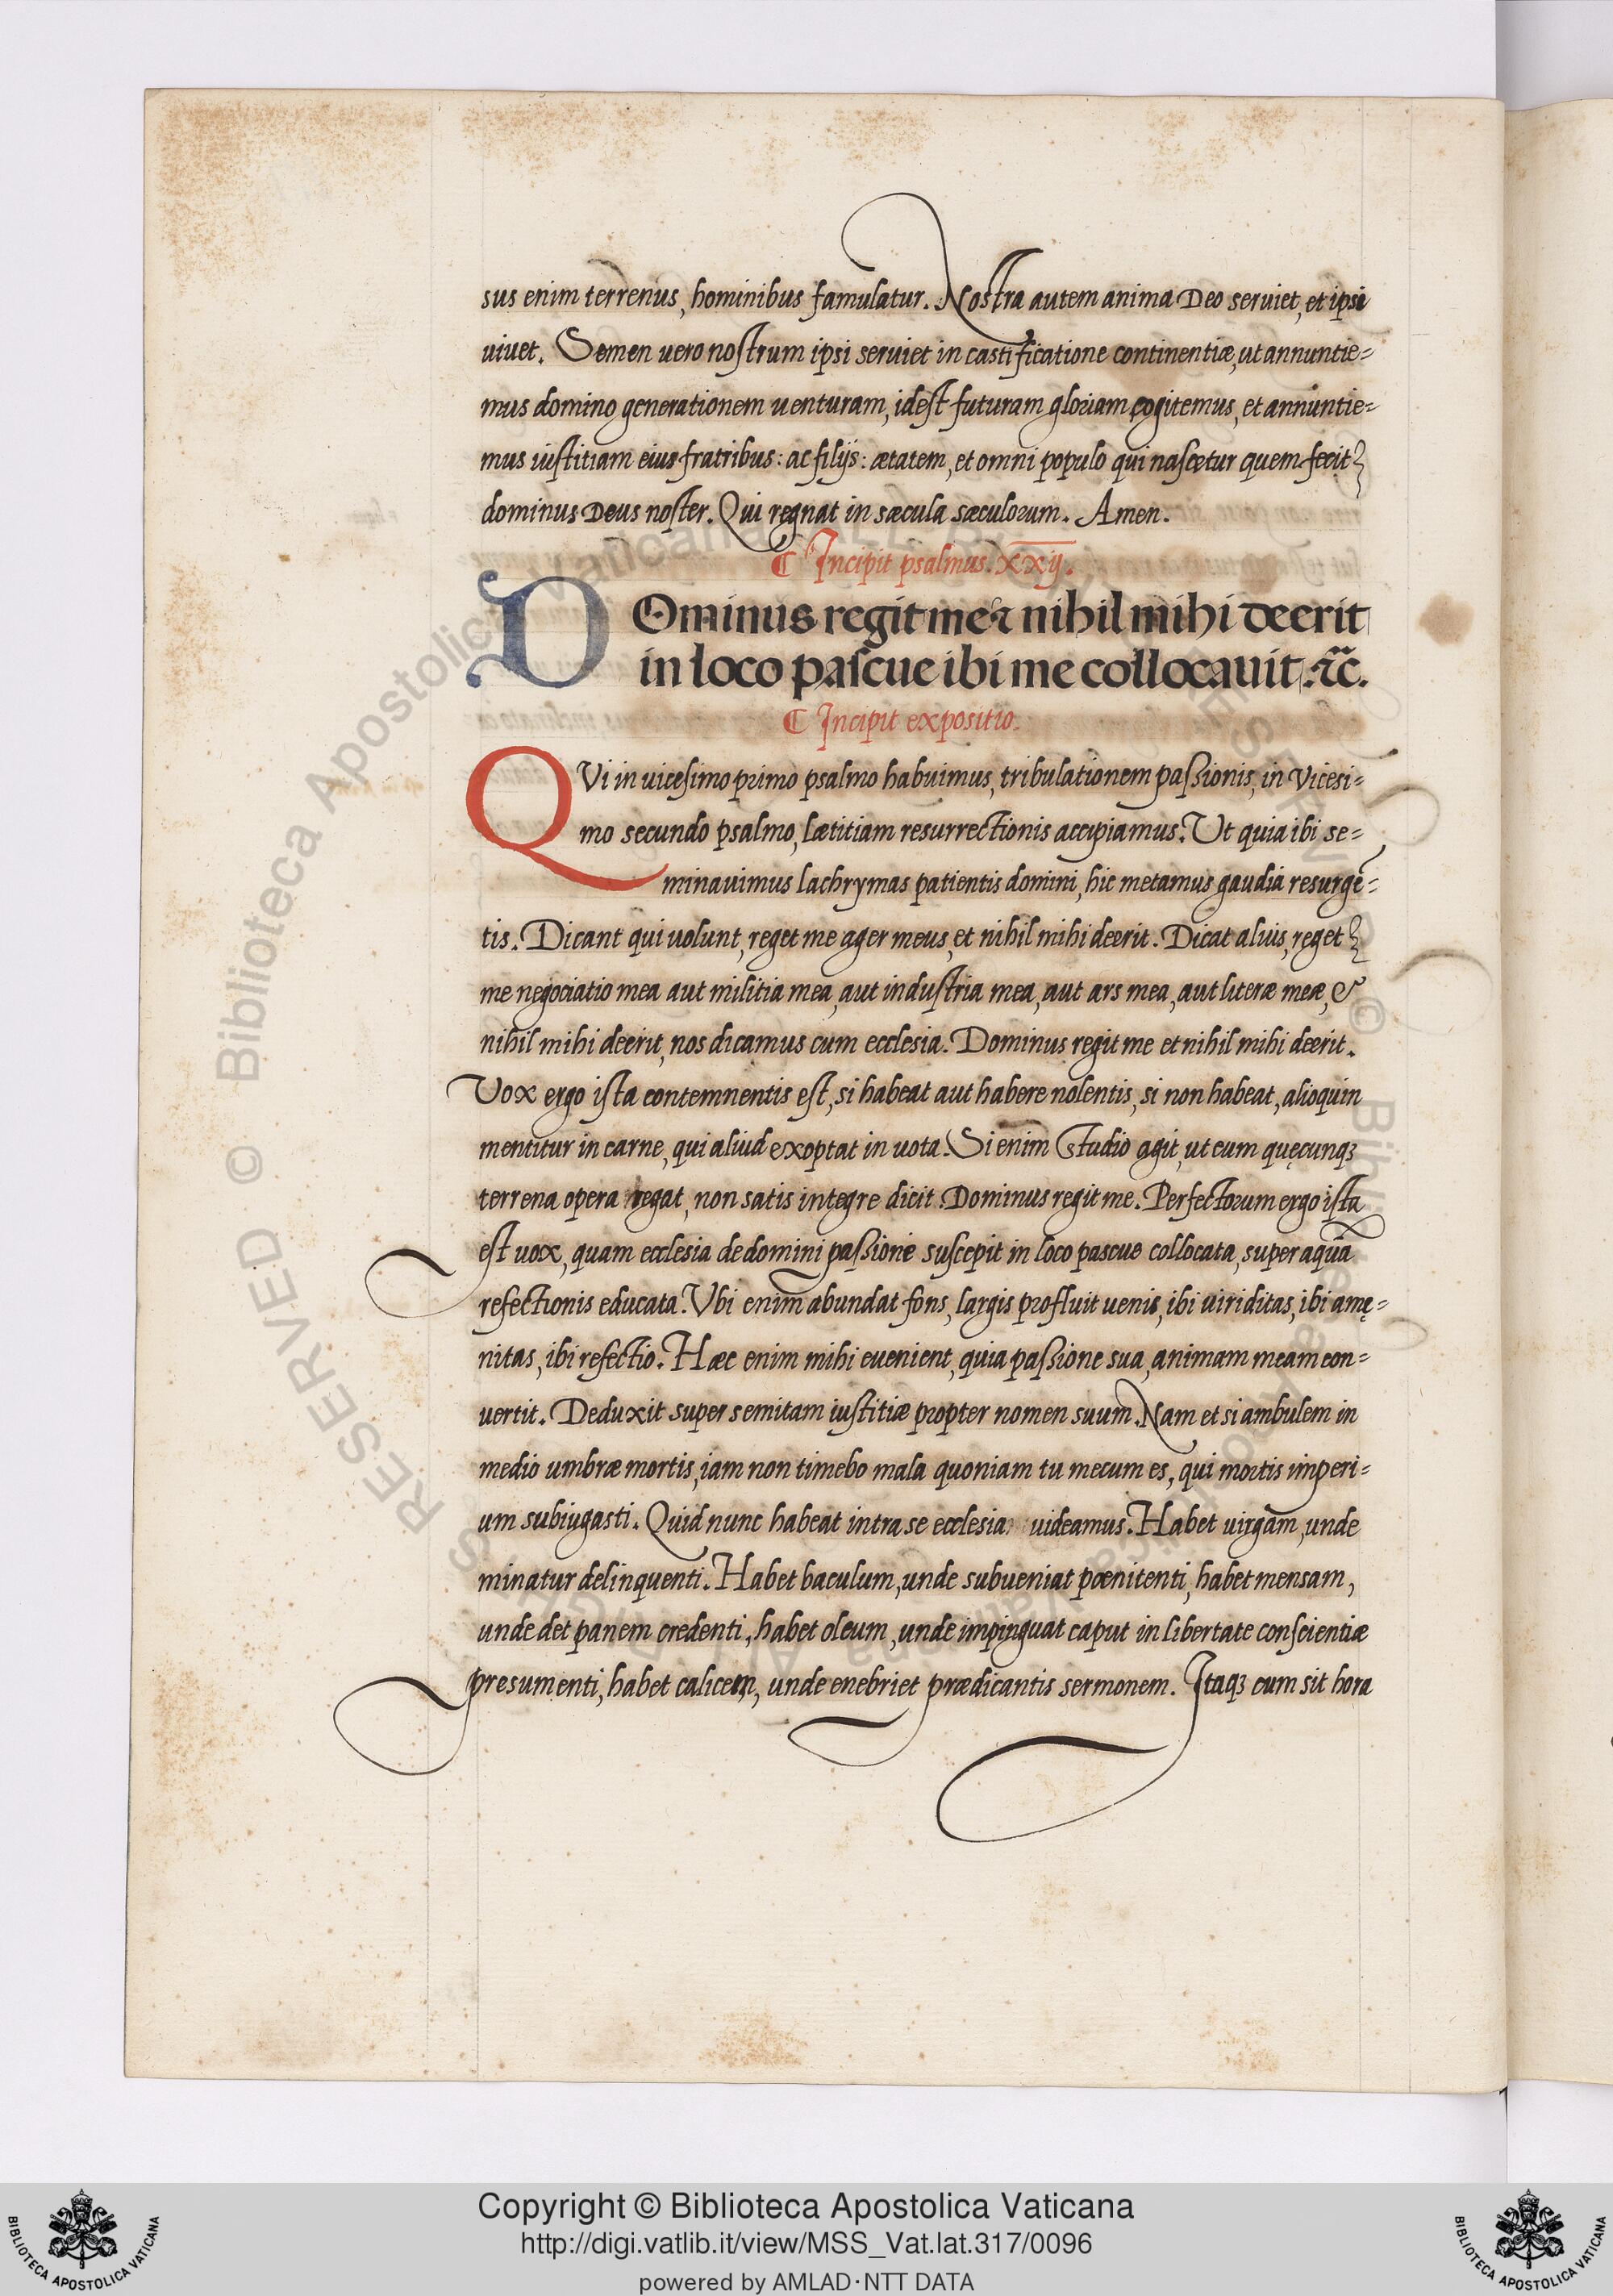 sus enim terrenus, hominibus famulatur. Nostra autem anima Deo seruiet, et ipsi
uiuet. Semen uero nostrum ipsi seruiet in castificatione continentiæ, ut annuntie=
mus domino generationem uenturam, idest futuram gloriam cogitemus, et annuntie=
mus iustitiam eius fratribus: ac filijs: ætatem, et omni populo qui nascetur quem fecit
dominus Deus noster. Qui regnat in sæcula sæculorum. Amen.
¶ Incipit psalmus. xxij.
DOminus regit me ⁊ nihil mihi deerit
in loco pascue ibi me collocauit. ⁊c.
¶ Incipit expositio.
QVi in uicesimo primo psalmo habuimus, tribulationem passionis, in vicesi=
mo secundo psalmo, lætitiam resurrectionis accipiamus. Ut quia ibi se=
minauimus lachrymas patientis domini, hic metamus gaudia resurgē=
tis. Dicant qui uolunt, reget me ager meus, et nihil mihi deerit. Dicat alius, reget
me negociatio mea aut militia mea, aut industria mea, aut ars mea, aut literæ meæ, &
nihil mihi deerit, nos dicamus cum ecclesia. Dominus regit me et nihil mihi deerit.
Vox ergo ista contemnentis est, si habeat aut habere nolentis, si non habeat, alioquin
mentitur in carne, qui aliud exoptat in uota. Si enim studio agit, ut eum quęcunqꝫ
terrena opera regat, non satis integre dicit. Dominus regit me. Perfectorum ergo ista
est uox, quam ecclesia de domini passione suscepit in loco pascue collocata, super aquā
refectionis educata. Vbi enim abundat fons, largis profluit uenis, ibi uiriditas, ibi amę=
nitas, ibi refectio. Hæc enim mihi euenient, quia passione sua, animam meam con=
uertit. Deduxit super semitam iustitiæ propter nomen suum. Nam et si ambulem in
medio umbræ mortis, iam non timebo mala quoniam tu mecum es, qui mortis imperi=
um subiugasti. Quid nunc habeat intra se ecclesia uideamus. Habet uirgam, unde
minatur delinquenti. Habet baculum, unde subueniat pœnitenti, habet mensam,
unde det panem credenti, habet oleum, unde impinguat caput in libertate conscientiæ
presumenti, habet calicem, unde enebriet prædicantis sermonem. Itaqꝫ cum sit hora
Copyright © Biblioteca Apostolica Vaticana
http://digi.vatlib.it/view/MSS_Vat.lat.317/0096
powered by AMLAD·NTT DATA
BIBLIOTECA APOSTOLICA VATICANA
BIBLIOTECA APOSTOLICA VATICANA